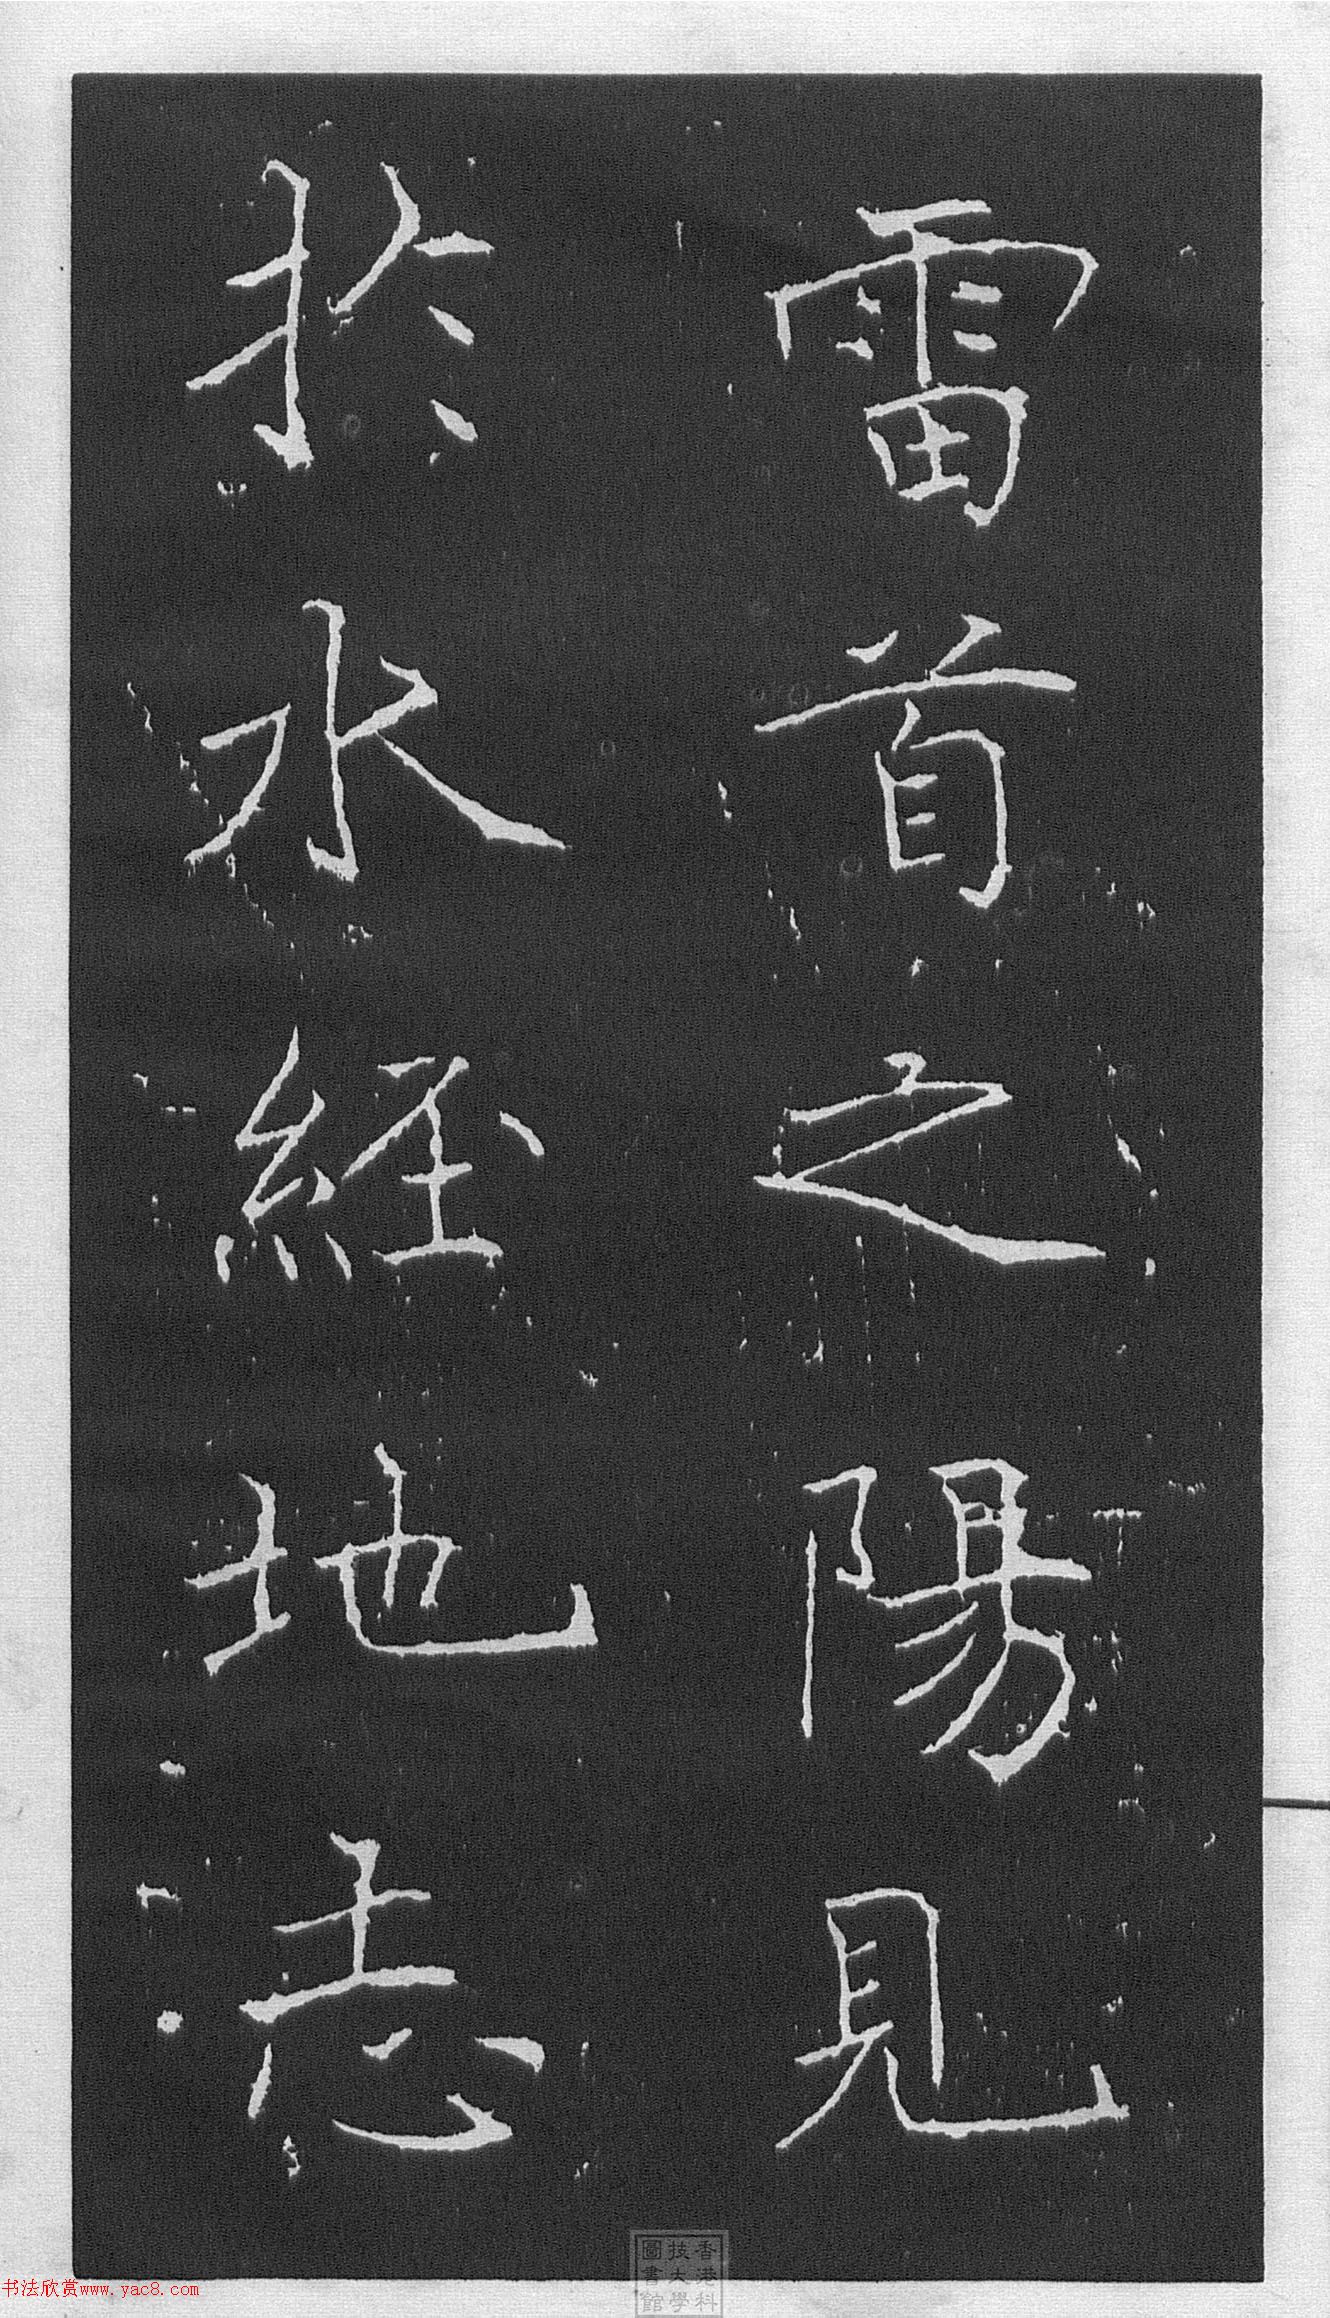 雷首之陽見
於水經地志
香港科
技大學
圖書館
书法欣赏www.yac8.com